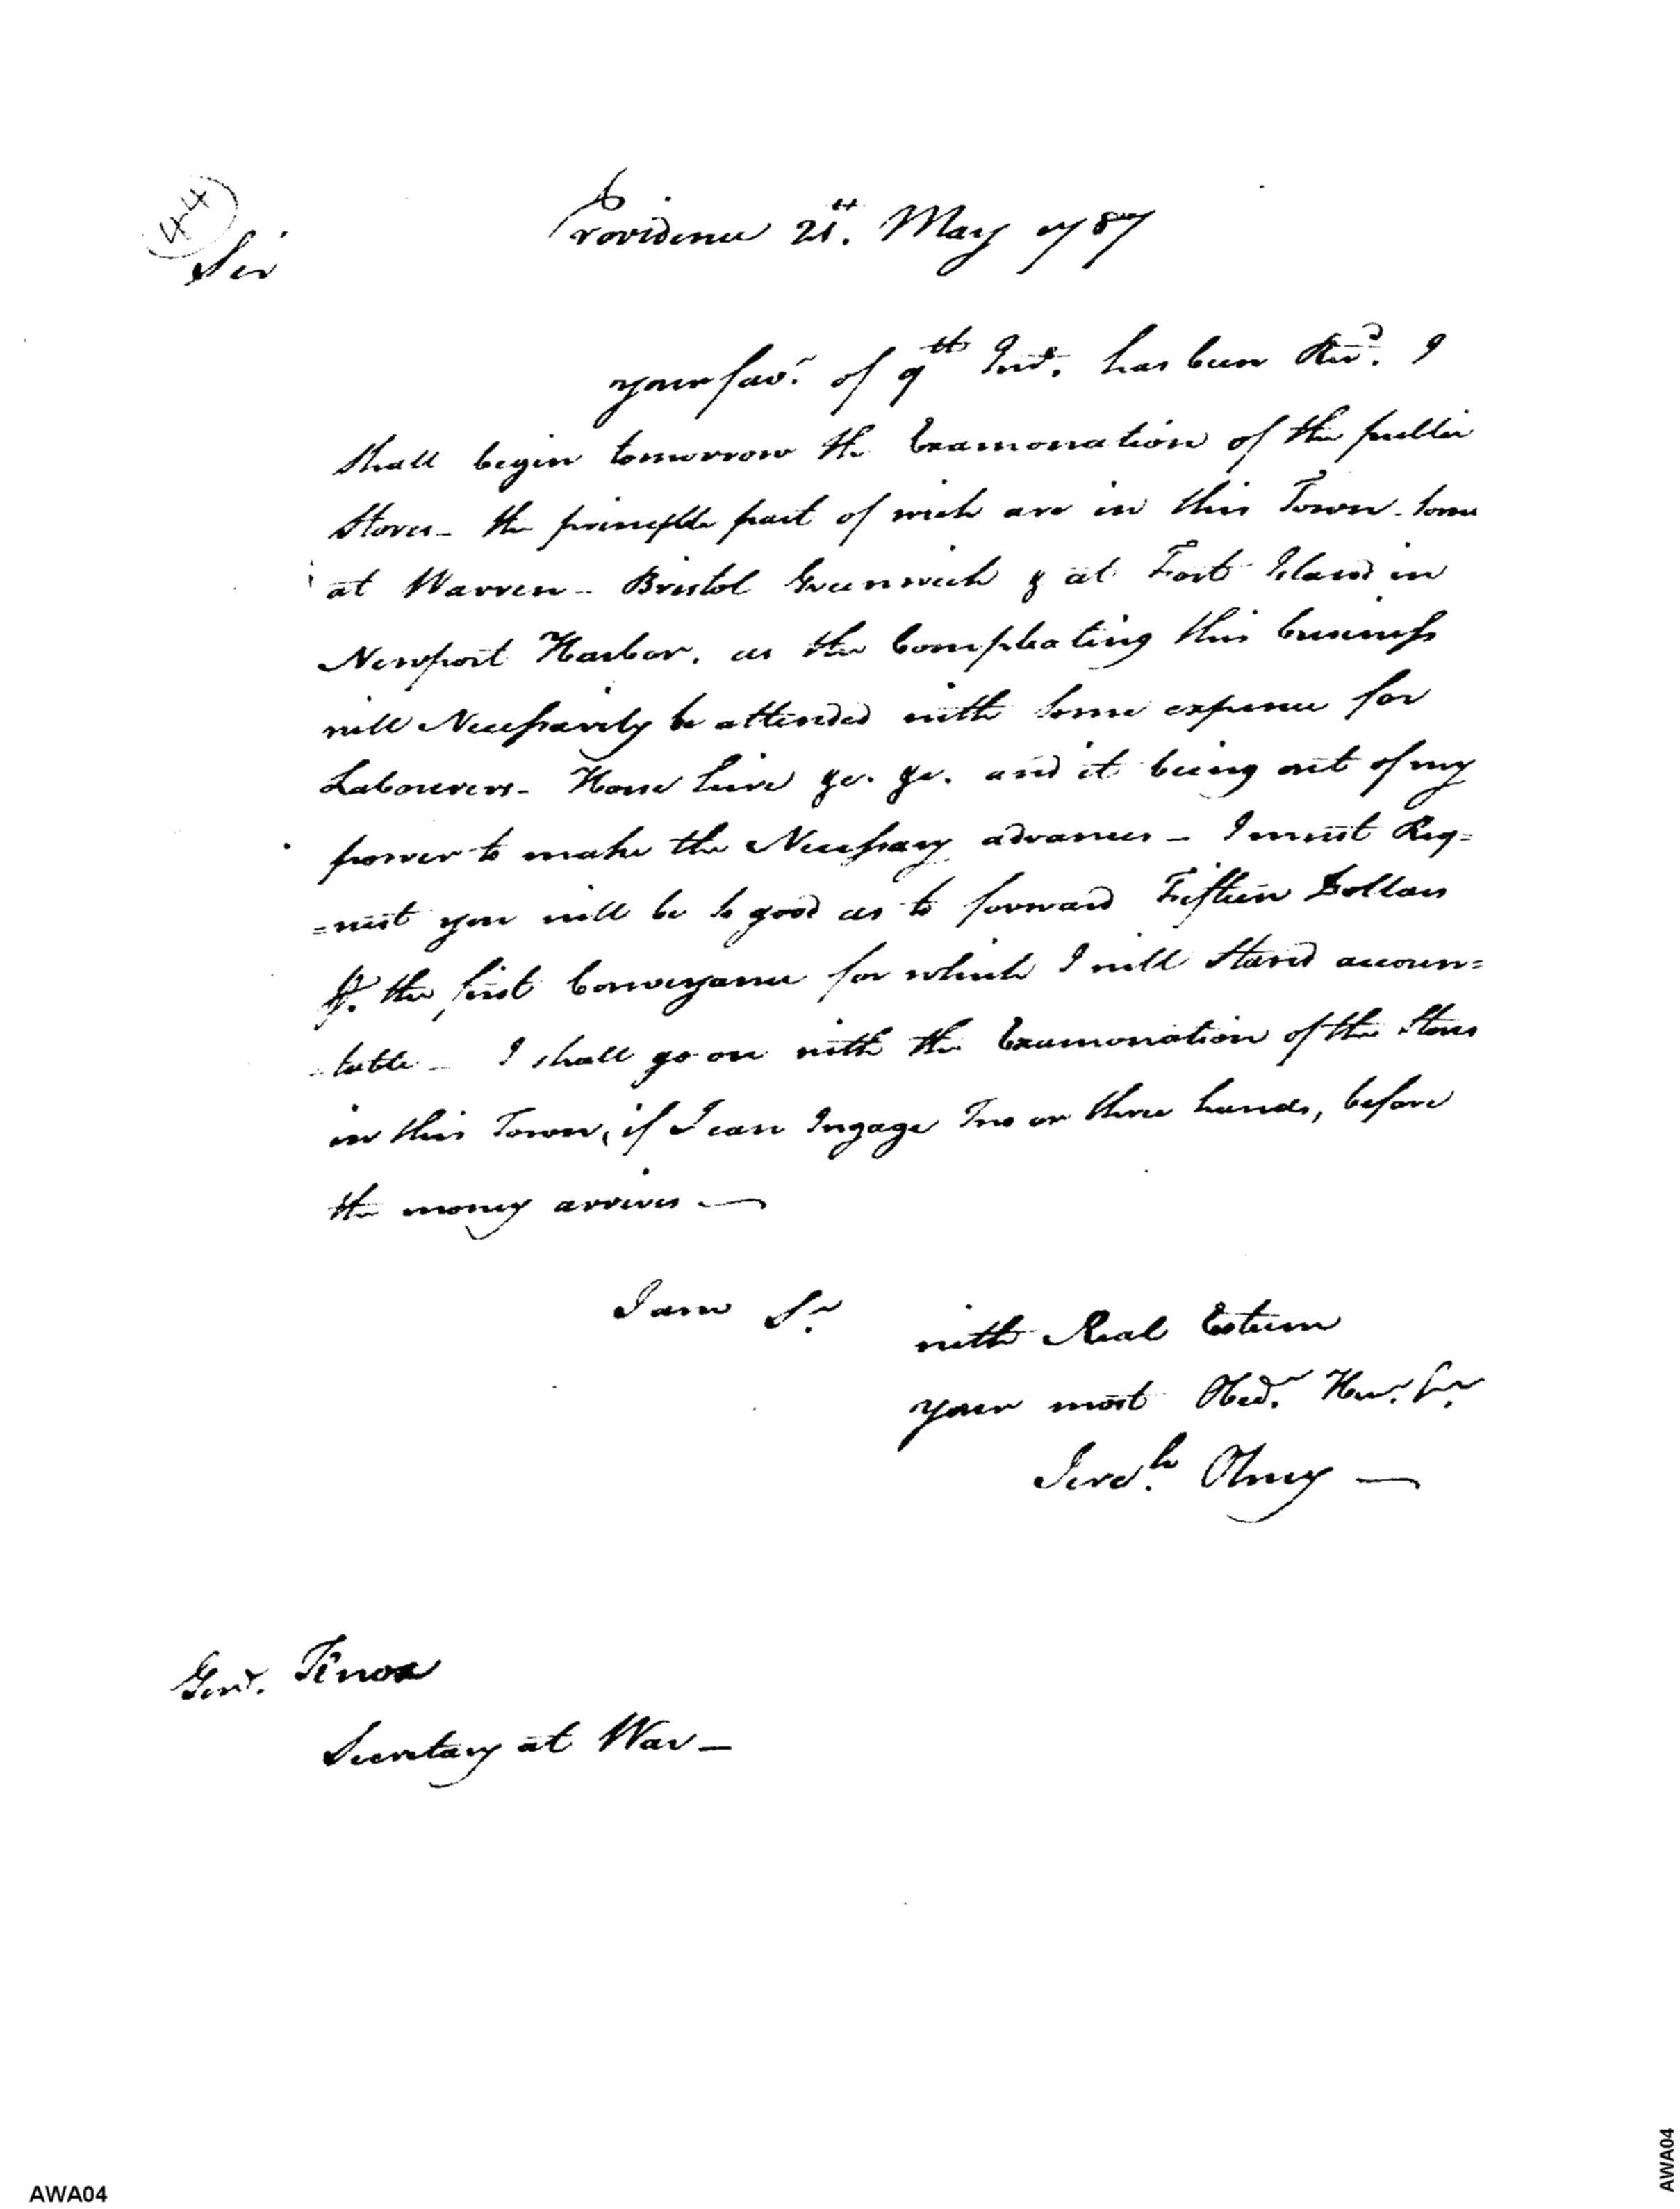 44
Providence 21.st May 1787
Sir
your favr. of 9th Inst. has been Recd. I
shall begin tomorrow the Examonation of the public
Stores - the principle part of wich are in this Town - some
at Warren - Bristol Greenwich & at Fort Island in
Newport Harbor. as the Compleating this business
will Necessarily be attended with some expence for
Labourers - Horse hire &c. &c. and it being out of my
power to make the Necessary advances - I must Req=
=uest you will be so good as to forward Fifteen Dollars
⅌. the first Conveyance for which I will Stand accoun=
-table - I shall go on with the Examonation of the Stores
in this Town, if I can Ingage Two or three hands, before
the money arrives —
I am Sr.
with Real Esteem
your most Obedt. Hue. Sr.
Jereh. Olney —
Genl. Knox
Secretary at War -
AWA04
AWA04